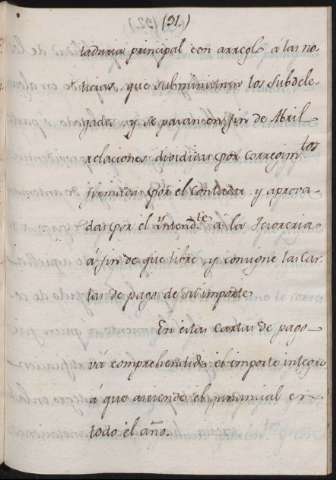 (91.)
taduria principal con arreglo á las no-
ticias, que subministran los Subdele-
gados, y se pasan en fin de Abril
relaciones divididas por corregim.tos
firmadas por el Contador, y aprova-
das por el Yntend.te a la Tesoreria
á fin de que libre, y consigne las Car-
tas de pago de su importe.
En estas Cartas de pago
vá comprehendido el importe integro
á que asciende el personal en
todo el año.